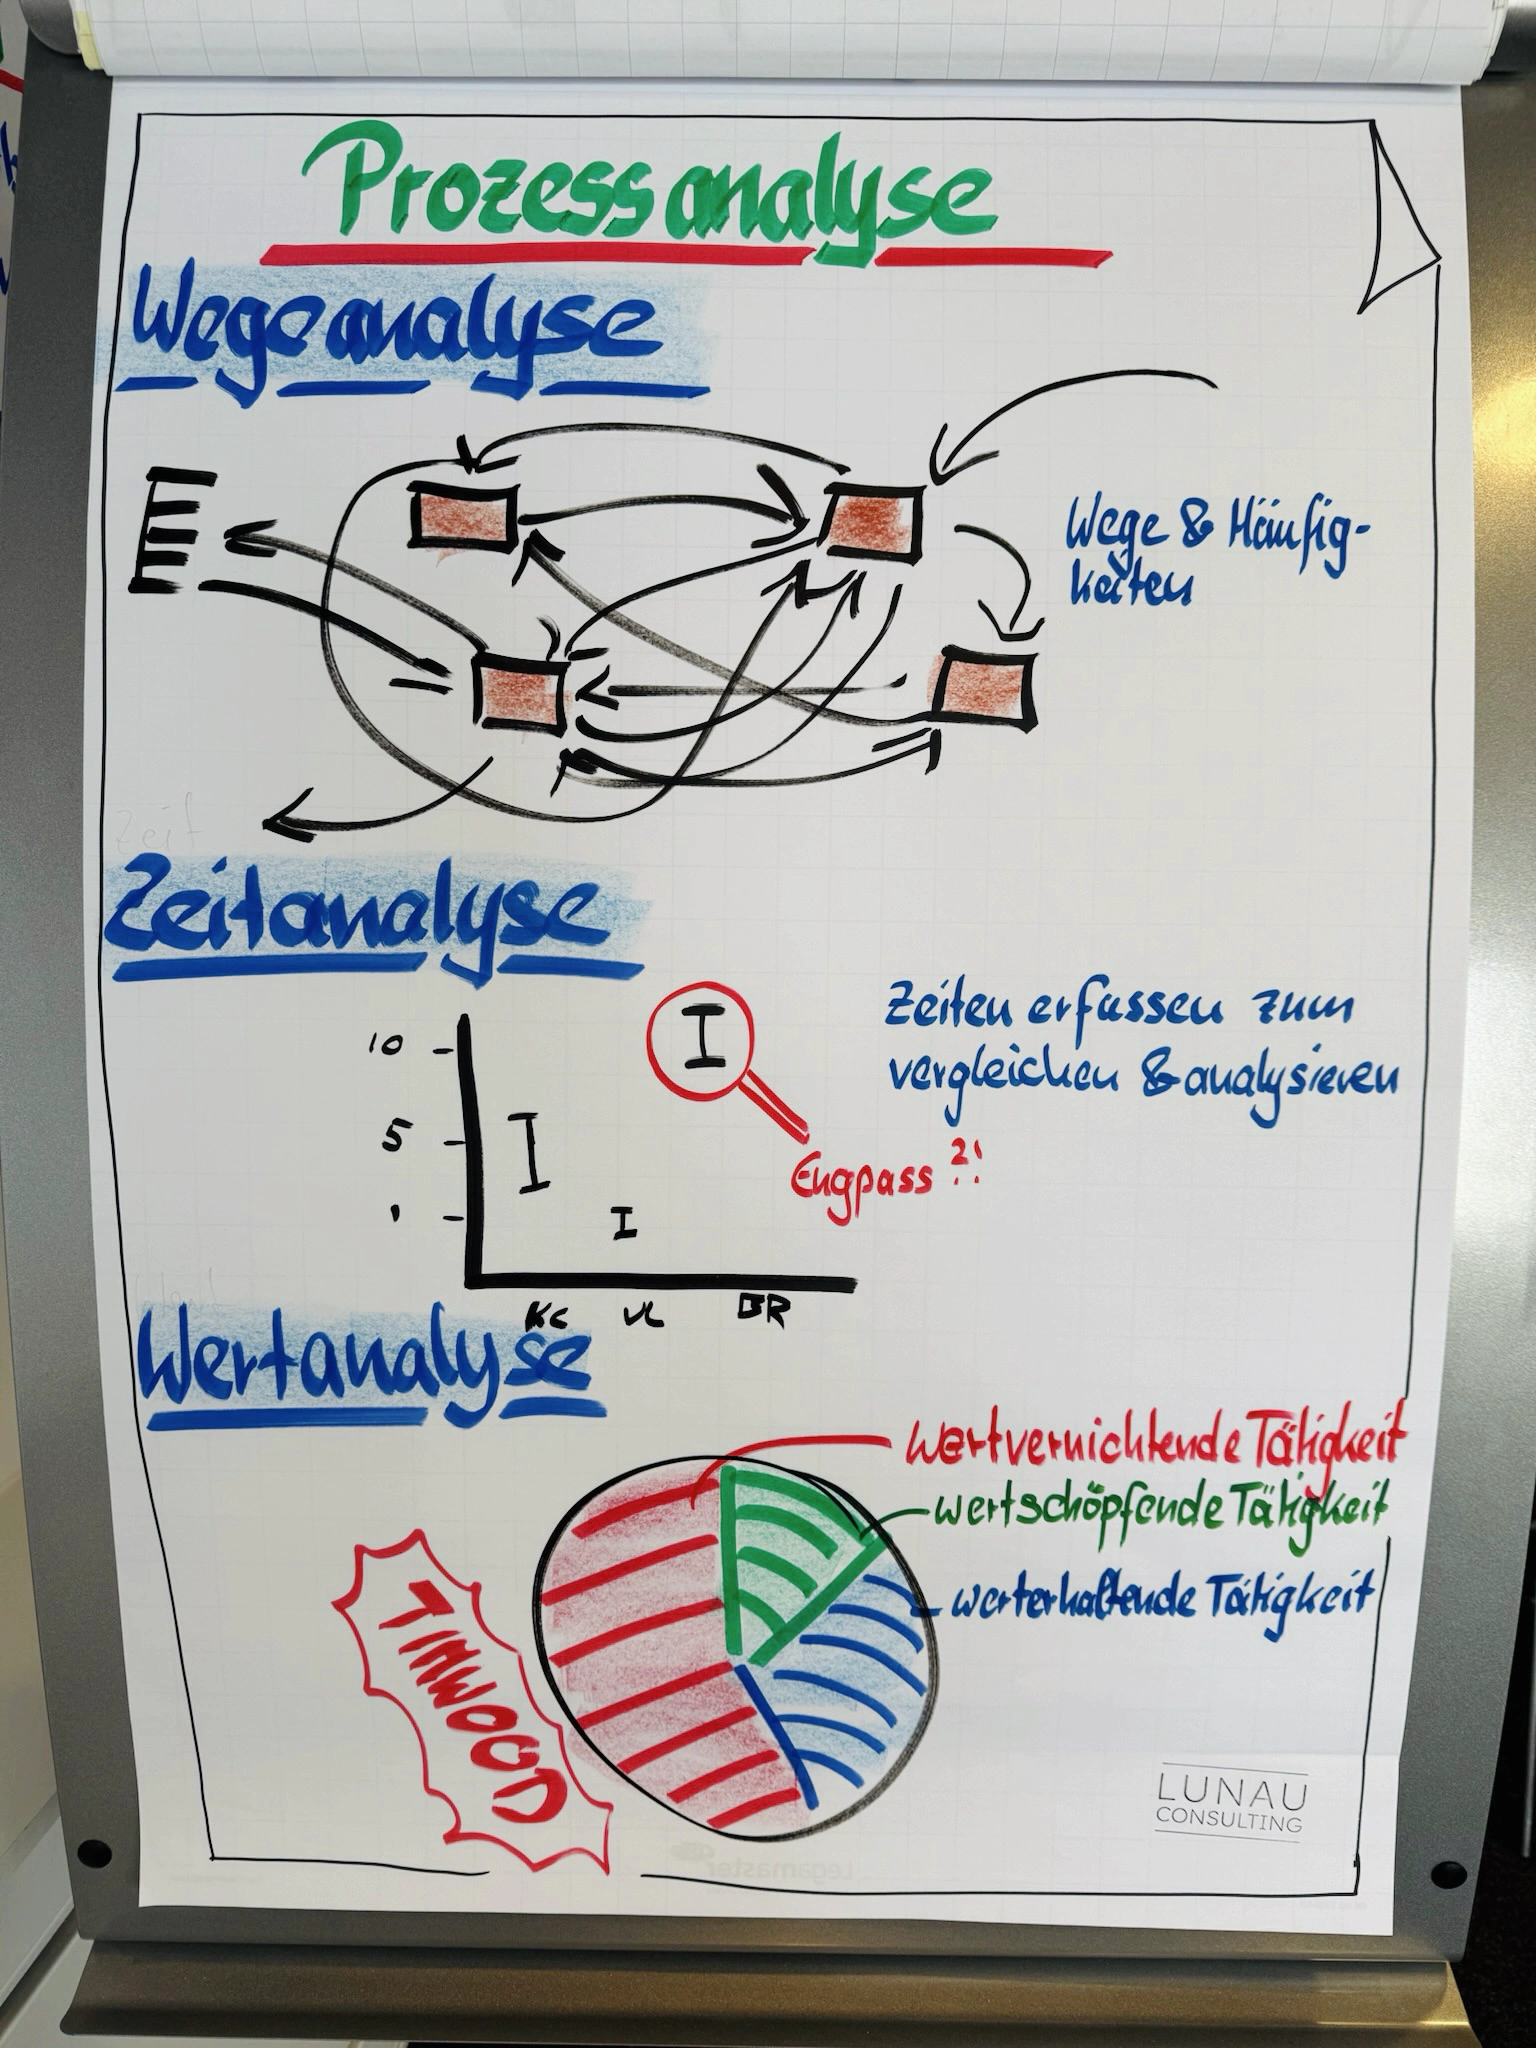 Prozessanalyse
Wegeanalyse
Wege & Häufig-
keiten
Zeit
Zeitanalyse
Zeiten erfassen zum
vergleichen & analysieren
10
5
1
I
I
I
Engpass ?!
KC VL BR
Wertanalyse
wertvernichtende Tätigkeit
wertschöpfende Tätigkeit
werterhaltende Tätigkeit
TIMWOOD
LUNAU
CONSULTING
Legamaster